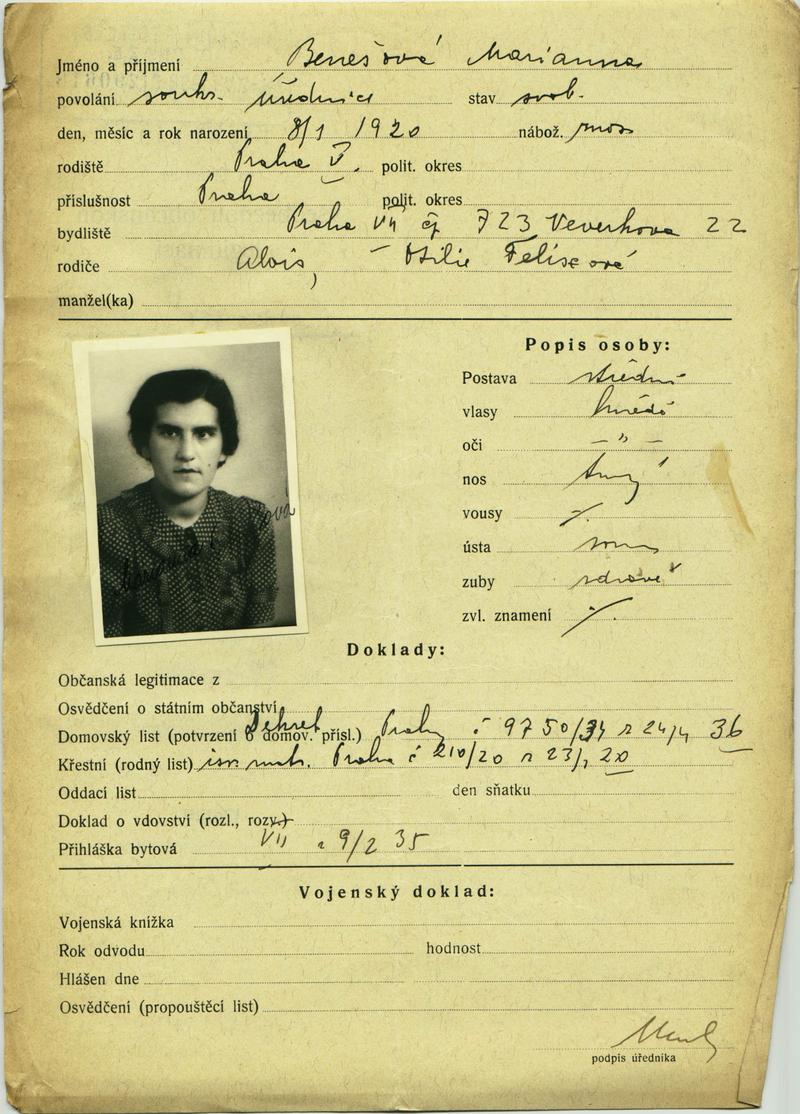 Jméno a příjmení Benešová Marianna
povolání soukr. úřednice stav svob.
den, měsíc a rok narození 8/1 1920 nábož. mos
rodiště Praha V. polit. okres
příslušnost Praha polit. okres
bydliště Praha VII čp 723 Veverkova 22
rodiče Alois, Otilie
manžel(ka)
Popis osoby:
Postava střední
vlasy hnědé
oči — " —
nos
vousy ⁒
ústa
zuby zdravé
zvl. znamení ⁒
Doklady:
Občanská legitimace z
Osvědčení o státním občanství
Dekret
Domovský list (potvrzení o domov. přísl.) Prahy č 9750/34 z 24/4 36
Křestní (rodný list) isr. matr. Praha č 210/20 z 23/1 20
Oddací list den sňatku
Doklad o vdovství (rozl., rozv.)
Přihláška bytová VII z 9/2 35
Vojenský doklad:
Vojenská knížka
Rok odvodu hodnost
Hlášen dne
Osvědčení (propouštěcí list)
podpis úředníka